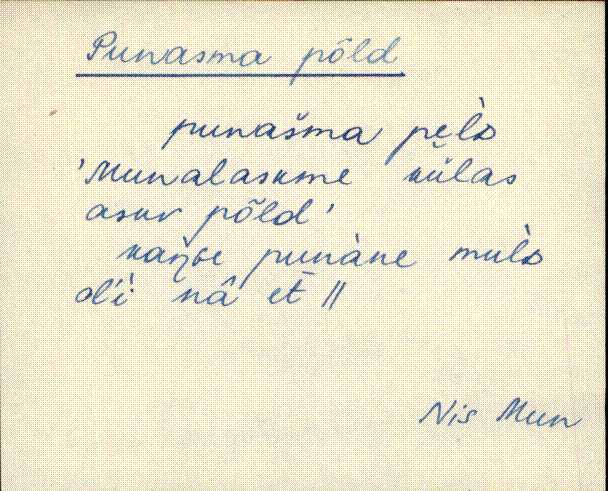 Punasma põld
punašma pèlo
'Munalaskme külas
asuv põld'
punàne mulò
nâ et̄ ||
Nis Mun